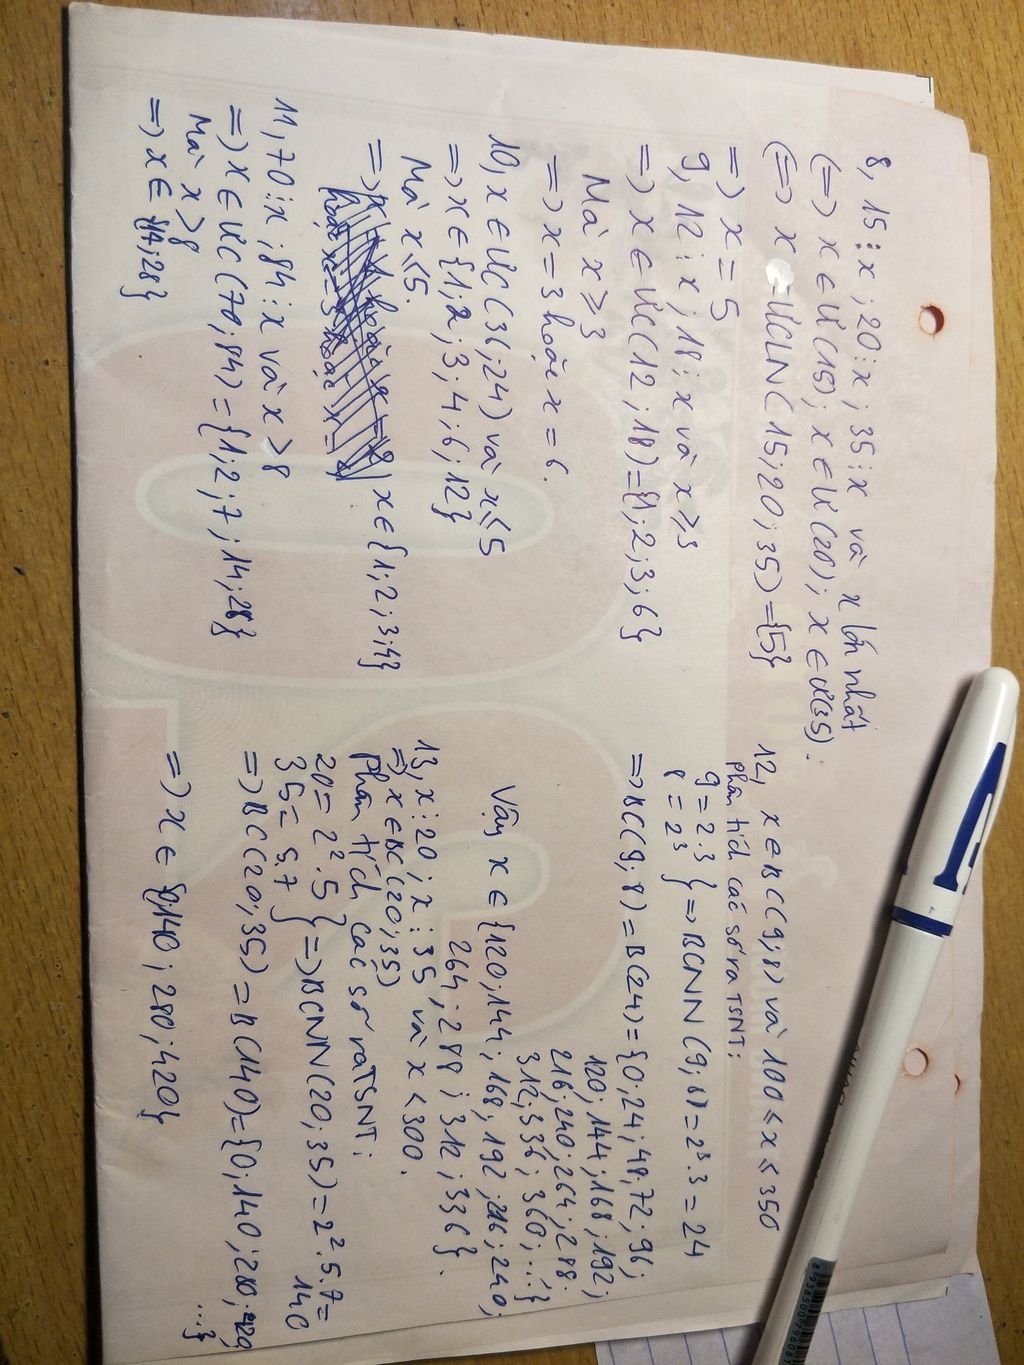 8, 15 ⋮ x ; 20 ⋮ x ; 35 ⋮ x và x lớn nhất
(=) x ∈ Ư(15); x ∈ Ư(20); x ∈ Ư(35).
(=) x = ƯCLN(15;20;35) = {5}
=) x = 5
9, 12 ⋮ x ; 18 ⋮ x và x ≥ 3
=) x ∈ ƯC(12;18) = {1;2;3;6}
Mà x ≥ 3
=) x = 3 hoặc x = 6.
10, x ∈ ƯC(36;24) và x ≤ 5
=) x ∈ {1;2;3;4;6;12}
Mà x ≤ 5.
=) x ∈ {1;2;3;4}
11, 70 ⋮ x ; 84 ⋮ x và x > 8
=) x ∈ ƯC(70;84) = {1;2;7;14;28}
Mà x > 8
=) x ∈ {14;28}
12, x ∈ BC(9;8) và 100 < x ≤ 350
Phân tích các số ra TSNT:
9 = 2.3
8 = 2³ } =) BCNN(9;8) = 2³.3 = 24
=) BC(9;8) = B(24) = {0;24;48;72;96;
120;144;168;192;
216;240;264;288;
312;336;360;...}
Vậy x ∈ {120;144;168;192;216;240;
264;288;312;336}.
13, x ⋮ 20 ; x ⋮ 35 và x < 300.
=) x ∈ BC(20;35)
Phân tích các số ra TSNT:
20 = 2².5
35 = 5.7 } =) BCNN(20;35) = 2².5.7 =
140
=) BC(20;35) = B(140) = {0;140;280;420;
...}
=) x ∈ {0;140;280;420}